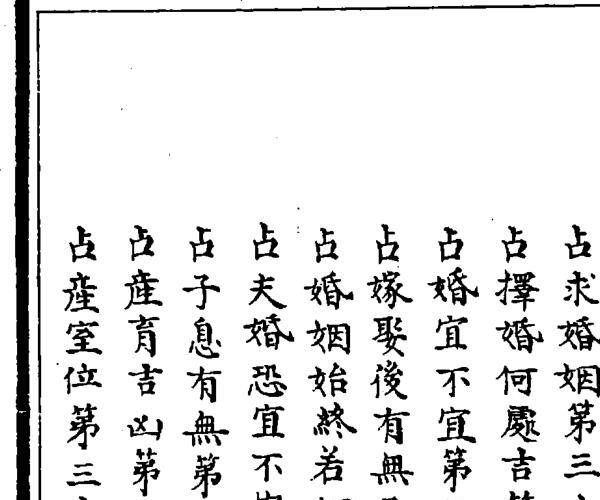 占求婚姻第三
占擇婚何處吉
占婚宜不宜第
占嫁娶後有無
占婚姻始終若
占夫婚恐宜不
占子息有無第
占產育吉凶第
占產室位第三